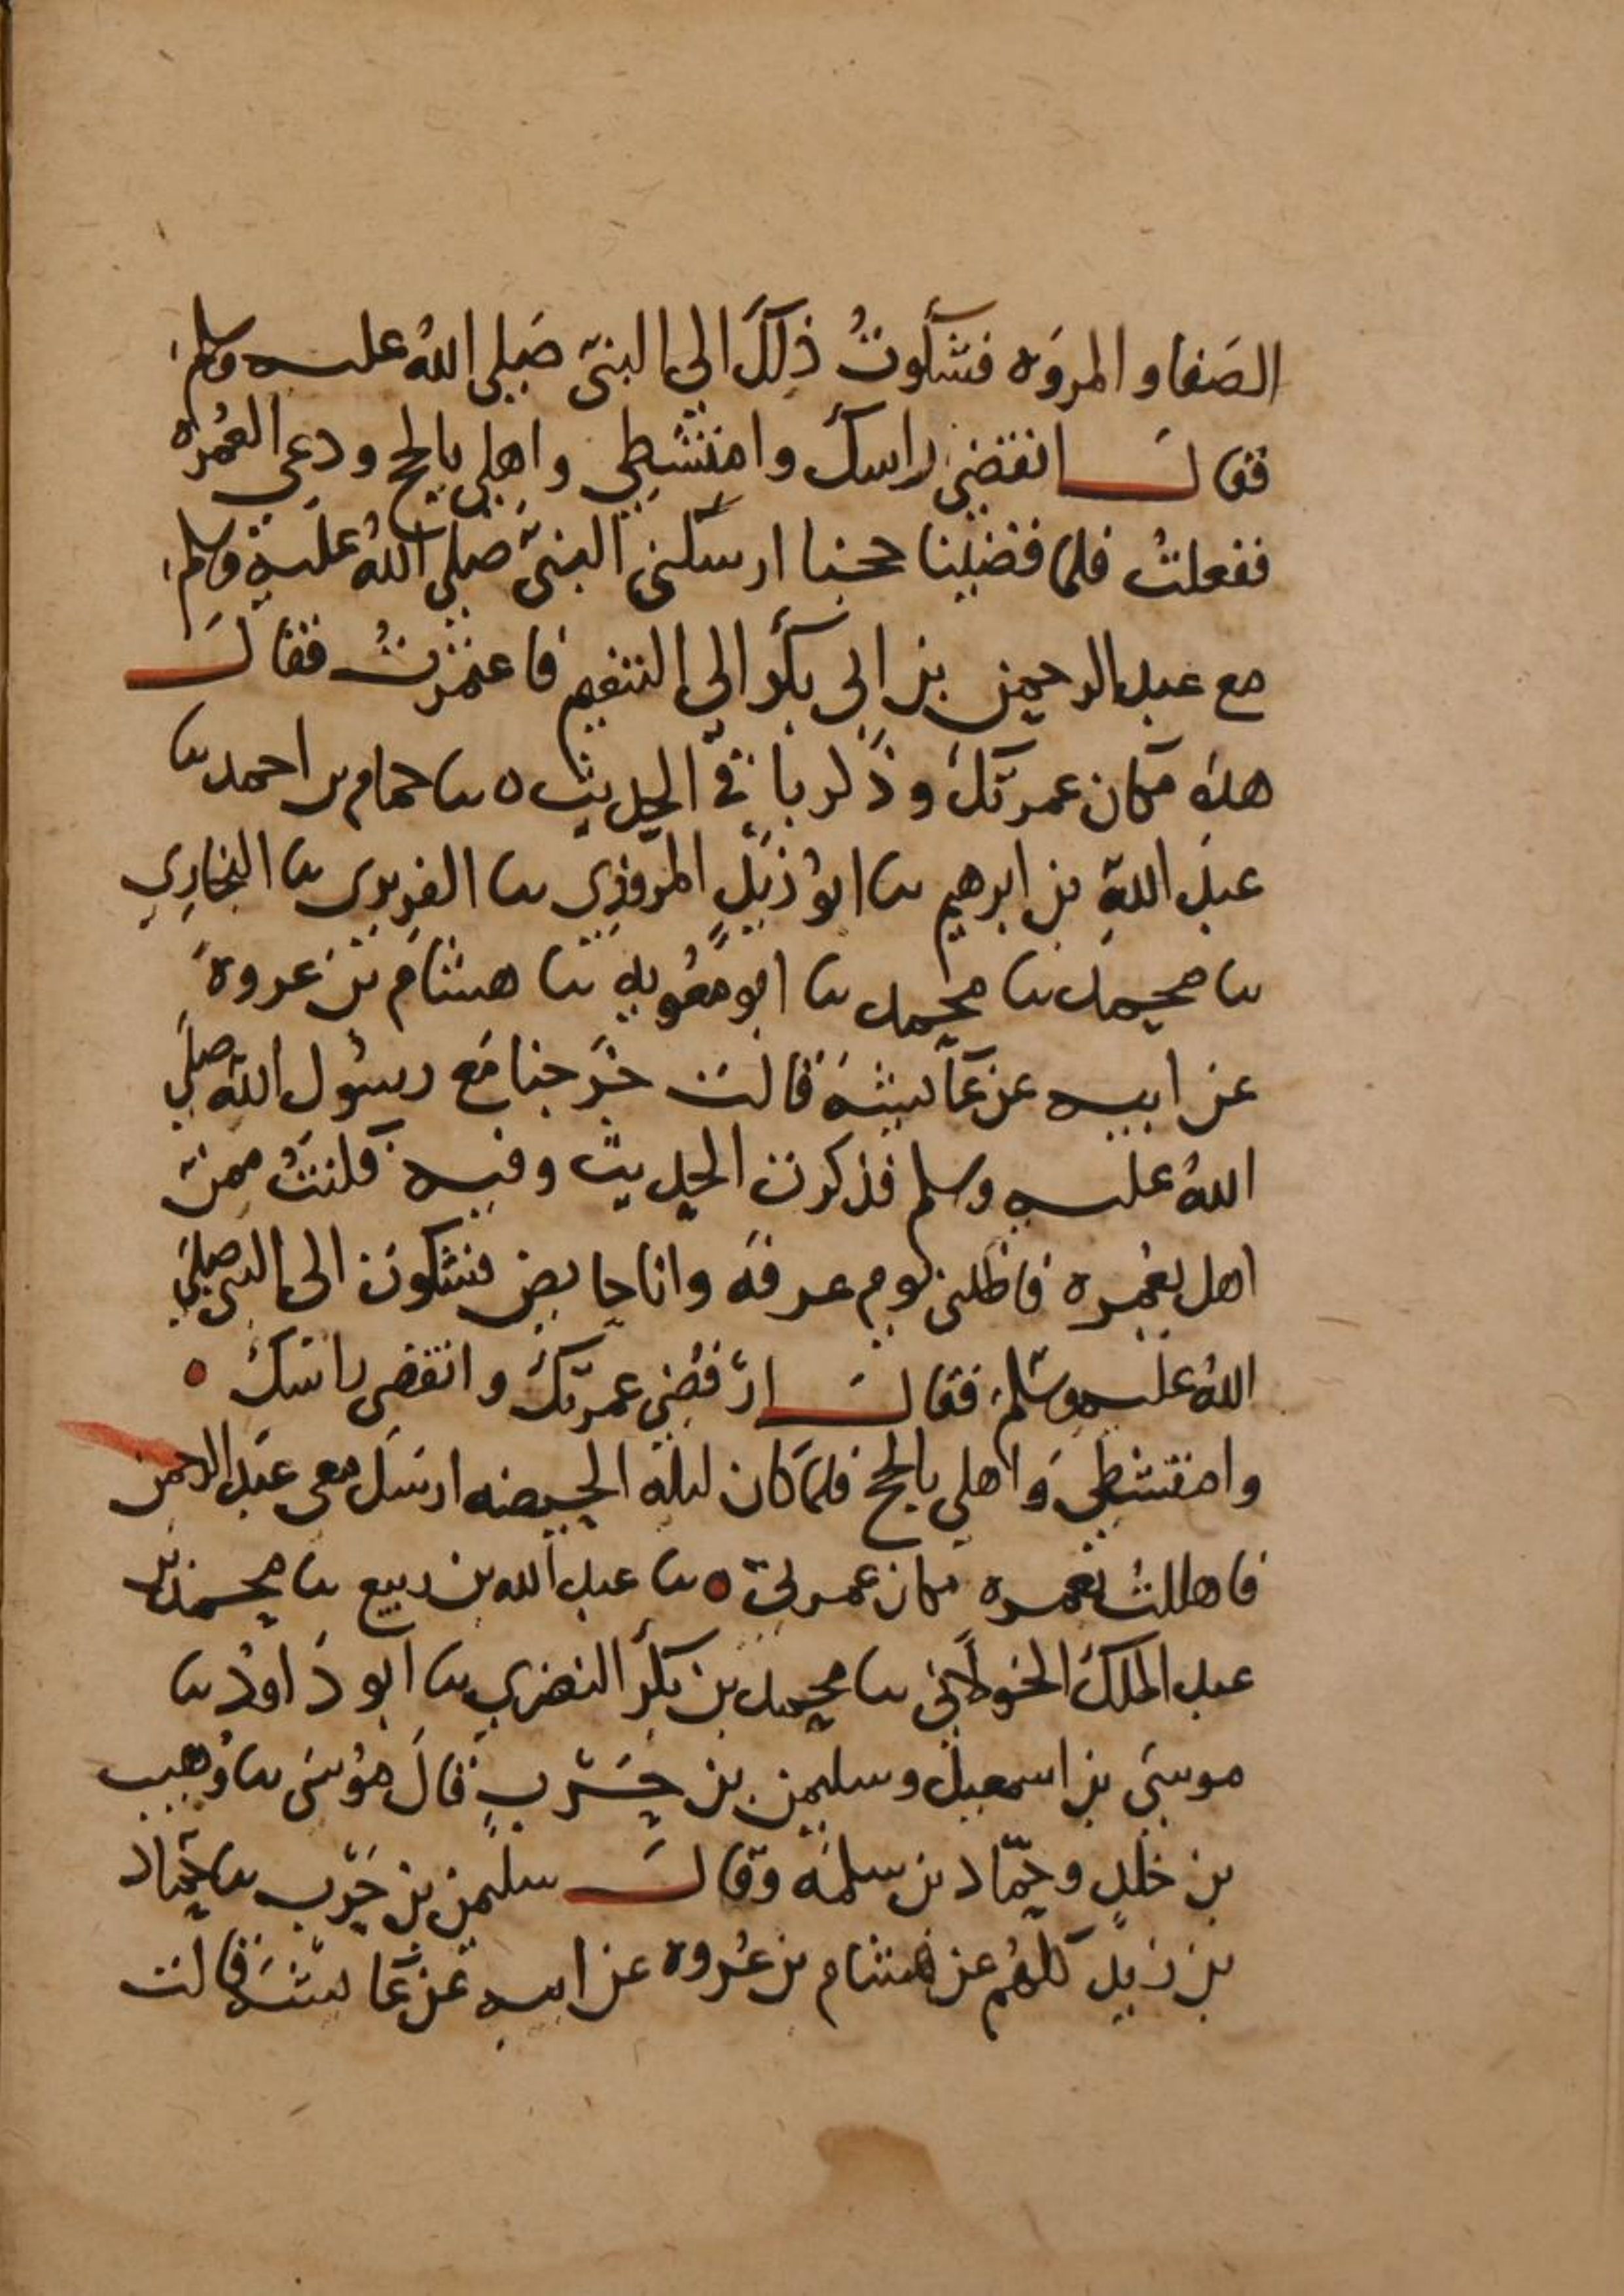 الصَفا و المروَه فشكوتُ ذلكَ الى النبىّ صَلى اللهُ عليه وسلم
فقالَ انقضي راسكِ وامتشطي واهلي بالحج ودعي العُمره
ففعلتُ فلما قضينا حجنا ارسَلني النبىّ صلى اللهُ عليه وسلم
مع عبد الرحمن بن ابى بكر الى التنعيم فاعتمرتُ فقالَ
هذه مكان عمرتكِ وذكر باقي الحديث ه نا حمام بن احمد نا
عبد الله بن ابرهيم نا ابو زيدٍ المروزي نا الفربرى نا البخارِي
نا محمد نا محمد نا ابو معوية نا هشام بن عروةَ
عن ابيه عن عَائشةَ قالت خَرجنا مَع رسُول الله صلى
اللهُ عليه وسلم فذكرت الحديث وفيه فكنتُ ممن
اهل بعُمره فاظلنى يوم عرفَه وانا حايض فشكوت الى النبى صلى
اللهُ عليه وسَلم فقالَ ارْفُضي عمرتَكِ وانقضى راسَكِ ه
وامتشطي وَاهلي بالحج فلمّا كان ليلة الحيضه ارسَل معى عَبد الرحمن
فاهللتُ بعمره مكان عمرتى ه نا عبد الله بن ربيع نا محمد بن
عبد الملك الخولاني نا محمد بن بكر البصري نا ابو دَاودُ نا
موسَى بن اسمعيل وسليمن بن حَرْبٍ قالَ مُوسَى نا وُهيب
بن خلدٍ وحمّاد بن سلمَه وقالَ سليمن بن حَرْب نا حماد
بن زيد كلهُم عن هشام بن عُروه عن ابيه عن عَائشَه قالت